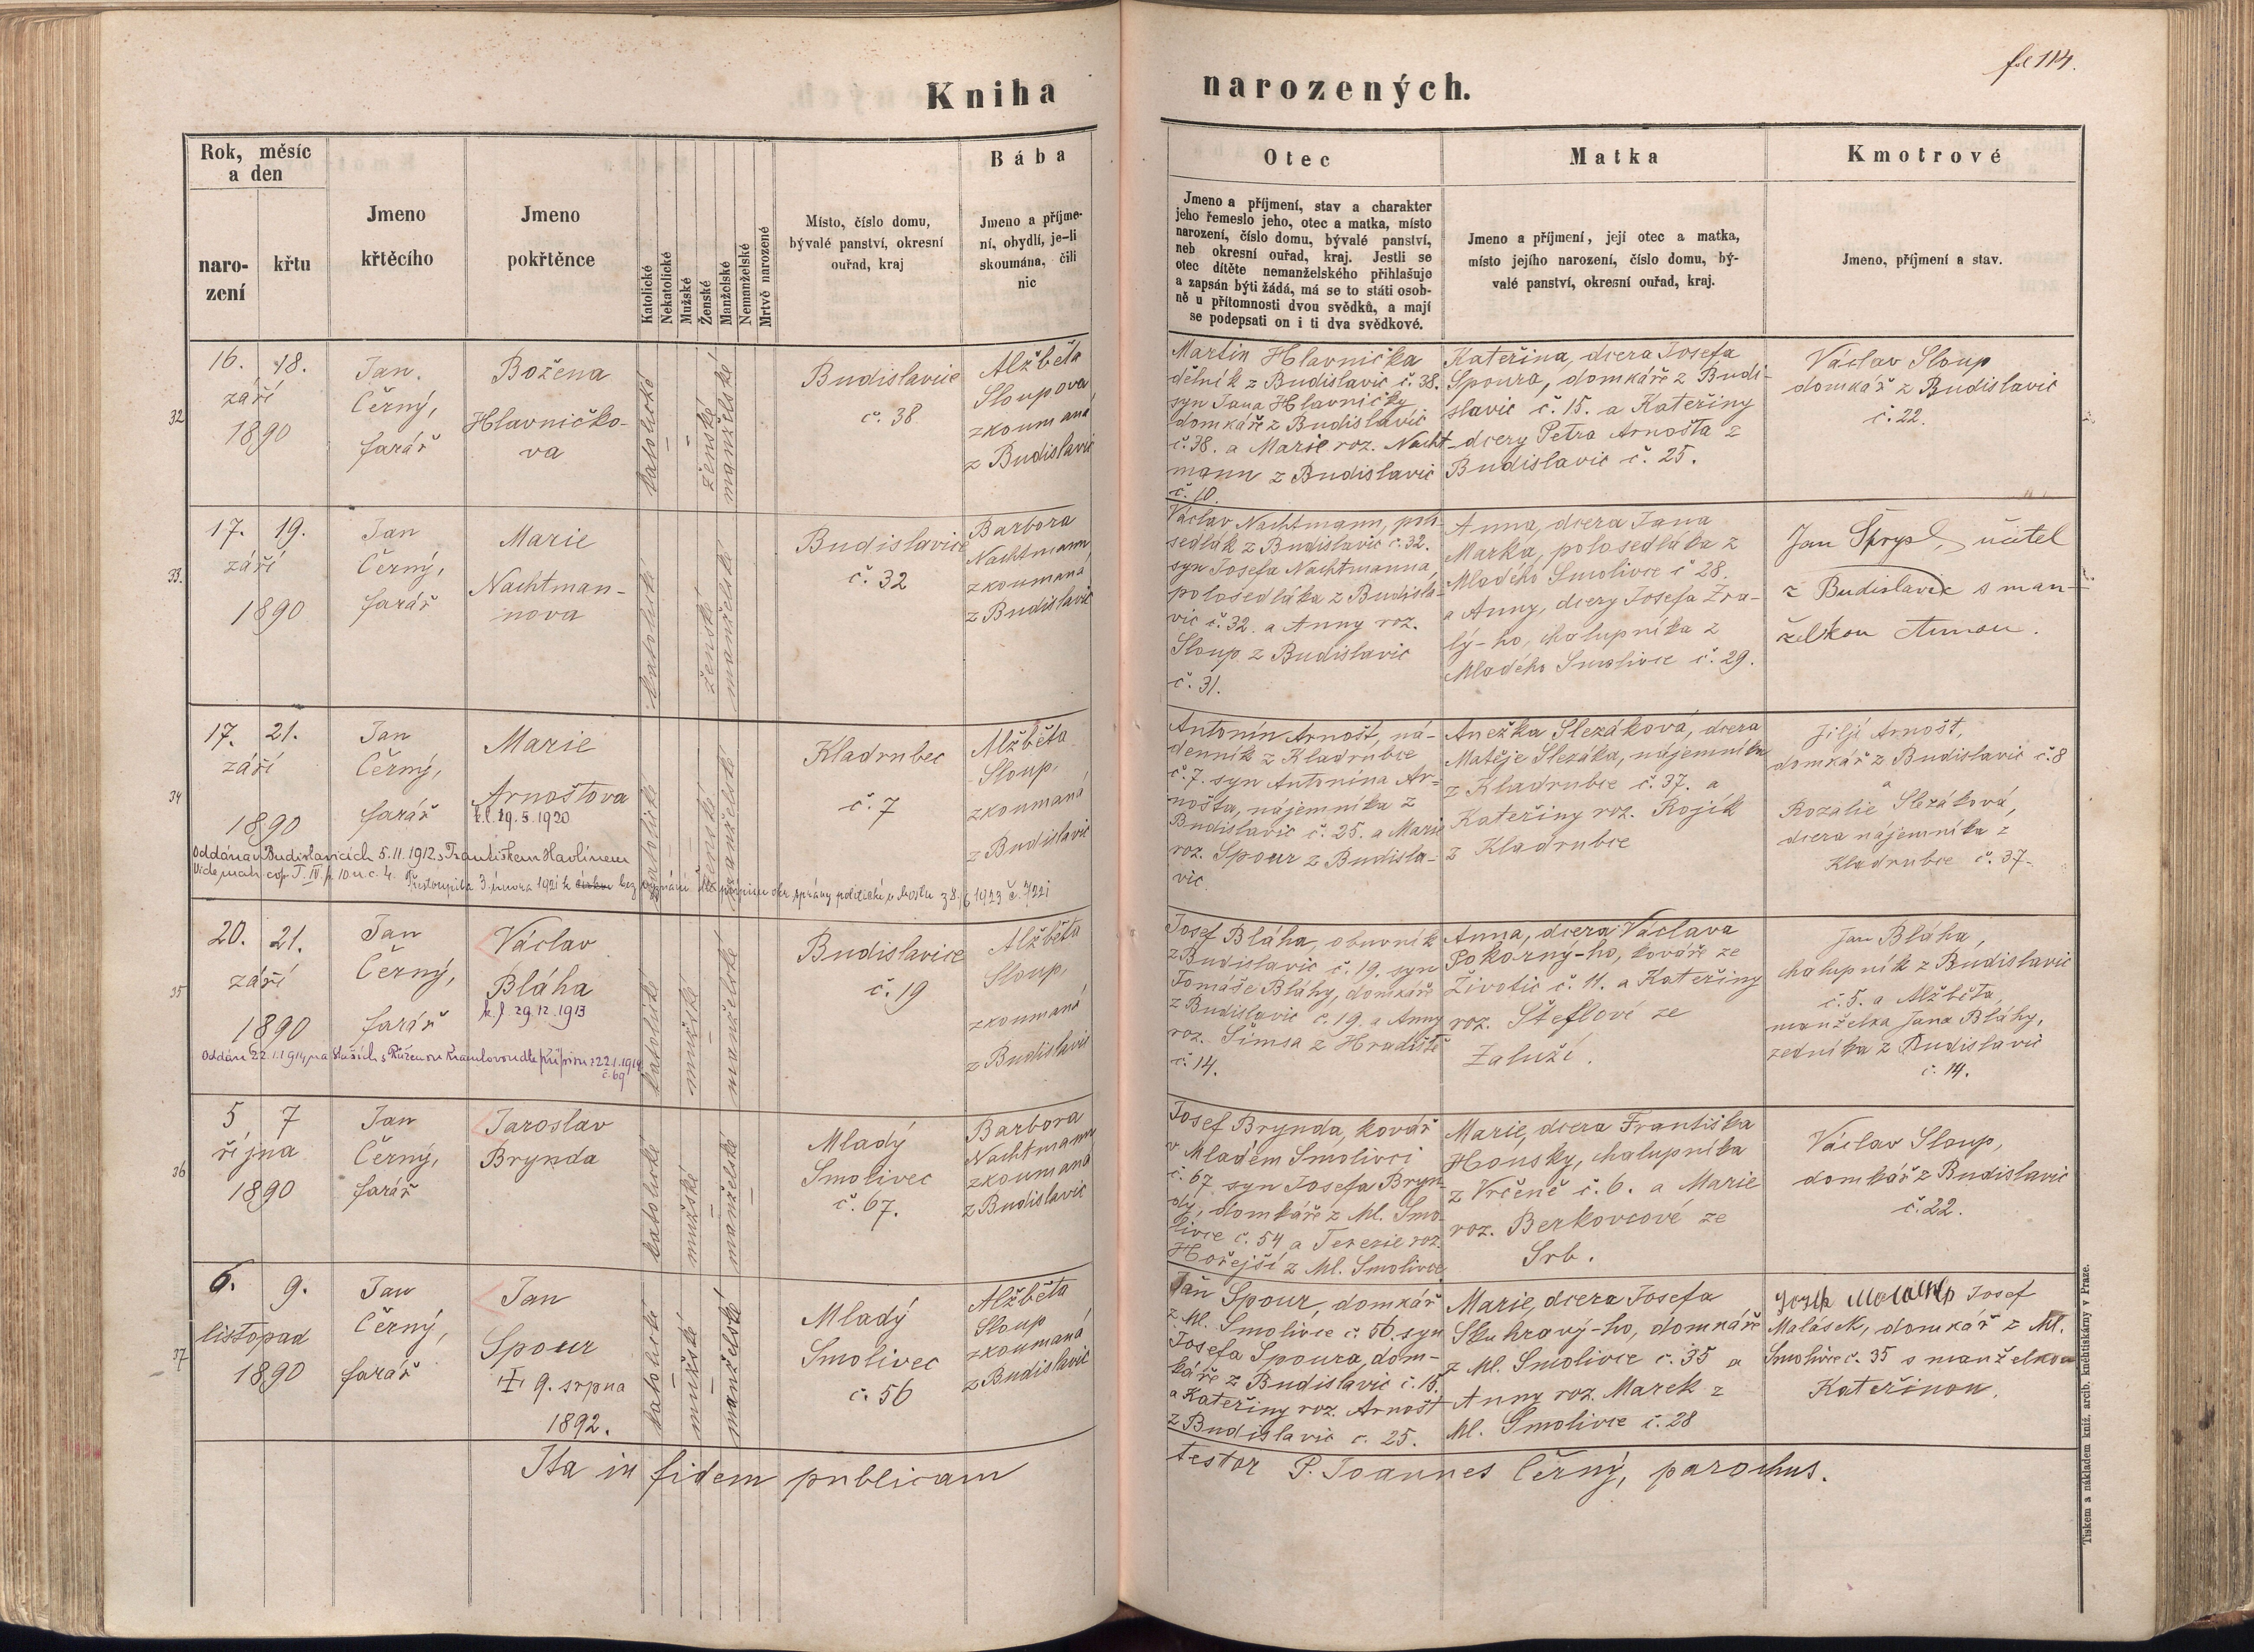 fol 114.
Kniha narozených.
Rok, měsíc
a den
naro-
zení
křtu
Jmeno
křtěcího
Jmeno
pokřtěnce
Katolické
Nekatolické
Mužské
Ženské
Manželské
Nemanželské
Mrtvě narozené
Místo, číslo domu,
bývalé panství, okresní
ouřad, kraj
Bába
Jmeno a příjme-
ní, obydlí, je-li
skoumána, čili
nic
Otec
Jmeno a příjmení, stav a charakter
jeho řemeslo jeho, otec a matka, místo
narození, číslo domu, bývalé panství,
neb okresní ouřad, kraj. Jestli se
otec dítěte nemanželského přihlašuje
a zapsán býti žádá, má se to státi osob-
ně u přítomnosti dvou svědků, a mají
se podepsati on i ti dva svědkové.
Matka
Jmeno a příjmení, její otec a matka,
místo jejího narození, číslo domu, bý-
valé panství, okresní ouřad, kraj.
Kmotrové
Jmeno, příjmení a stav.
32
16. 18.
září
1890
Jan
Černý,
farář
Božena
Hlavničko-
va
katolické
ženské
manželské
Budislavice
č. 38
Alžběta
Sloupova
zkoumaná
z Budislavic
Martin Hlavnička
dělník z Budislavic č. 38.
syn Jana Hlavničky
domkáře z Budislavic
č. 38. a Marie roz. Nacht-
mann z Budislavic
č. 10.
Kateřina, dcera Josefa
Spoura, domkáře z Budi-
slavic č. 15. a Kateřiny
dcery Petra Arnošta z
Budislavic č. 25.
Václav Sloup
domkář z Budislavic
č. 22.
33.
17. 19.
září
1890
Jan
Černý,
farář
Marie
Nachtman-
nova
katolické
ženské
manželské
Budislavice
č. 32
Barbora
Nachtmann
zkoumaná
z Budislavic
Václav Nachtmann, polo-
sedlák z Budislavic č. 32.
syn Josefa Nachtmanna,
polosedláka z Budisla-
vic č. 32. a Anny roz.
Sloup z Budislavic
č. 31.
Anna, dcera Jana
Marka, polosedláka z
Mladého Smolivce č 28.
a Anny, dcery Josefa Zra-
lý-ho, chalupníka z
Mladého Smolivce č. 29.
Jan Šprysl, učitel
z Budislavic s man-
želkou Annou.
34
17. 21.
září
1890
Jan
Černý,
farář
Marie
Arnoštova
k.l. 29.5.1920
katolické
ženské
manželské
Kladrubec
č. 7
Alžběta
Sloup,
zkoumaná
z Budislavic
Antonín Arnošt, ná-
denník z Kladrubce
č. 7. syn Antonína Ar-
nošta, nájemníka z
Budislavic č. 25. a Marie
roz. Spour z Budisla-
vic.
Anežka Slezáková, dcera
Matěje Slezáka, nájemníka
z Kladrubce č. 37. a
Kateřiny roz. Rojík
z Kladrubce
Jiljí Arnošt,
domkář z Budislavic č. 8
a
Rozalie Slezáková,
dcera nájemníka z
Kladrubce č. 37.
Oddána v Budislavicích 5.11.1912 s Františkem Havlínem
Vide mat. cop. T. IV. p. 10 n. č. 4. Přestoupila 3. února 1921 k církvi bez vyznání dle přípisu okr. správy politické v Mostu z 8/6 1923 č. 7221
35
20. 21.
září
1890
Jan
Černý,
farář
Václav
Bláha
k.l 29.12.1913
katolické
mužské
manželské
Budislavice
č. 19
Alžběta
Sloup,
zkoumaná
z Budislavic
Josef Bláha, obuvník
z Budislavic č. 19. syn
Tomáše Bláhy, domkáře
z Budislavic č. 19. a Anny
roz. Šimsa z Hradiště
č. 14.
Anna, dcera Václava
Pokorný-ho, kováře ze
Životic č. 11. a Kateřiny
roz. Šteflové ze
Zaluží.
Jan Bláha,
chalupník z Budislavic
č. 5. a Alžběta,
manželka Jana Bláhy,
zedníka z Budislavic
č. 14.
Oddán 22.1.1914 na Slaších s Růženou Kramlovou dle přípisu z 22.1.1914
č. 69
36
5 7
října
1890
Jan
Černý,
farář
Jaroslav
Brynda
katolické
mužské
manželské
Mladý
Smolivec
č. 67.
Barbora
Nachtmann
zkoumaná
z Budislavic
Josef Brynda, kovář
v Mladém Smolivci
č. 67 syn Josefa Bryn-
dy, domkáře z Ml. Smo-
livce č. 54 a Terezie roz.
Hořejší z Ml. Smolivce
Marie, dcera Františka
Housky, chalupníka
z Vrčeně č. 6. a Marie
roz. Berkovcové ze
Srb.
Václav Sloup,
domkář z Budislavic
č. 22.
37
6. 9.
listopad
1890
Jan
Černý,
farář
Jan
Spour
9. srpna
1892.
katolické
mužské
manželské
Mladý
Smolivec
č. 56
Alžběta
Sloup
zkoumaná
z Budislavic
Jan Spour, domkář
z Ml. Smolivce č. 56. syn
Josefa Spoura, dom-
káře z Budislavic č. 15.
a Kateřiny roz. Arnošt
z Budislavic č. 25.
Marie, dcera Josefa
Skuhravý-ho, domkáře
z Ml. Smolivce č. 35 a
Anny roz. Marek z
Ml. Smolivce č. 28
Josef
Malásek, domkář z Ml.
Smolivce č. 35 s manželkou
Kateřinou.
Ita in fidem publicam testor P. Joannes Černý, parochus.
Tiskem a nákladem kníž. arcib. knihtiskárny v Praze.